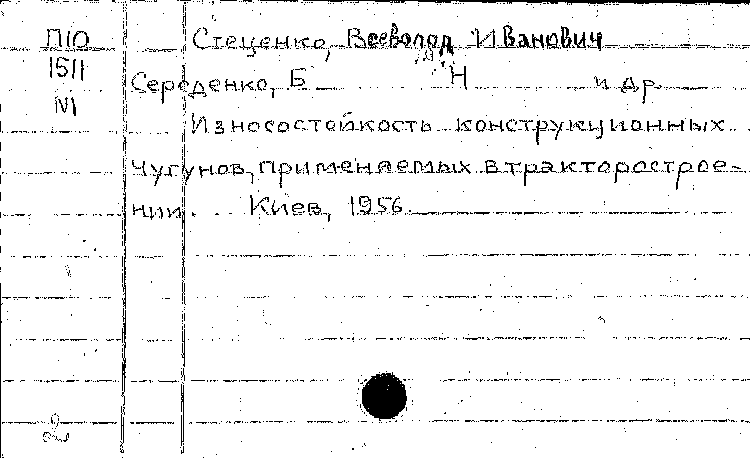 П10
1511
N1
Стеценко, Всеволод Иванович
Середенко, Б Н и др.
Износостойкость конструкционных
чугунов, применяемых в тракторострое-
нии. Киев, 1956.